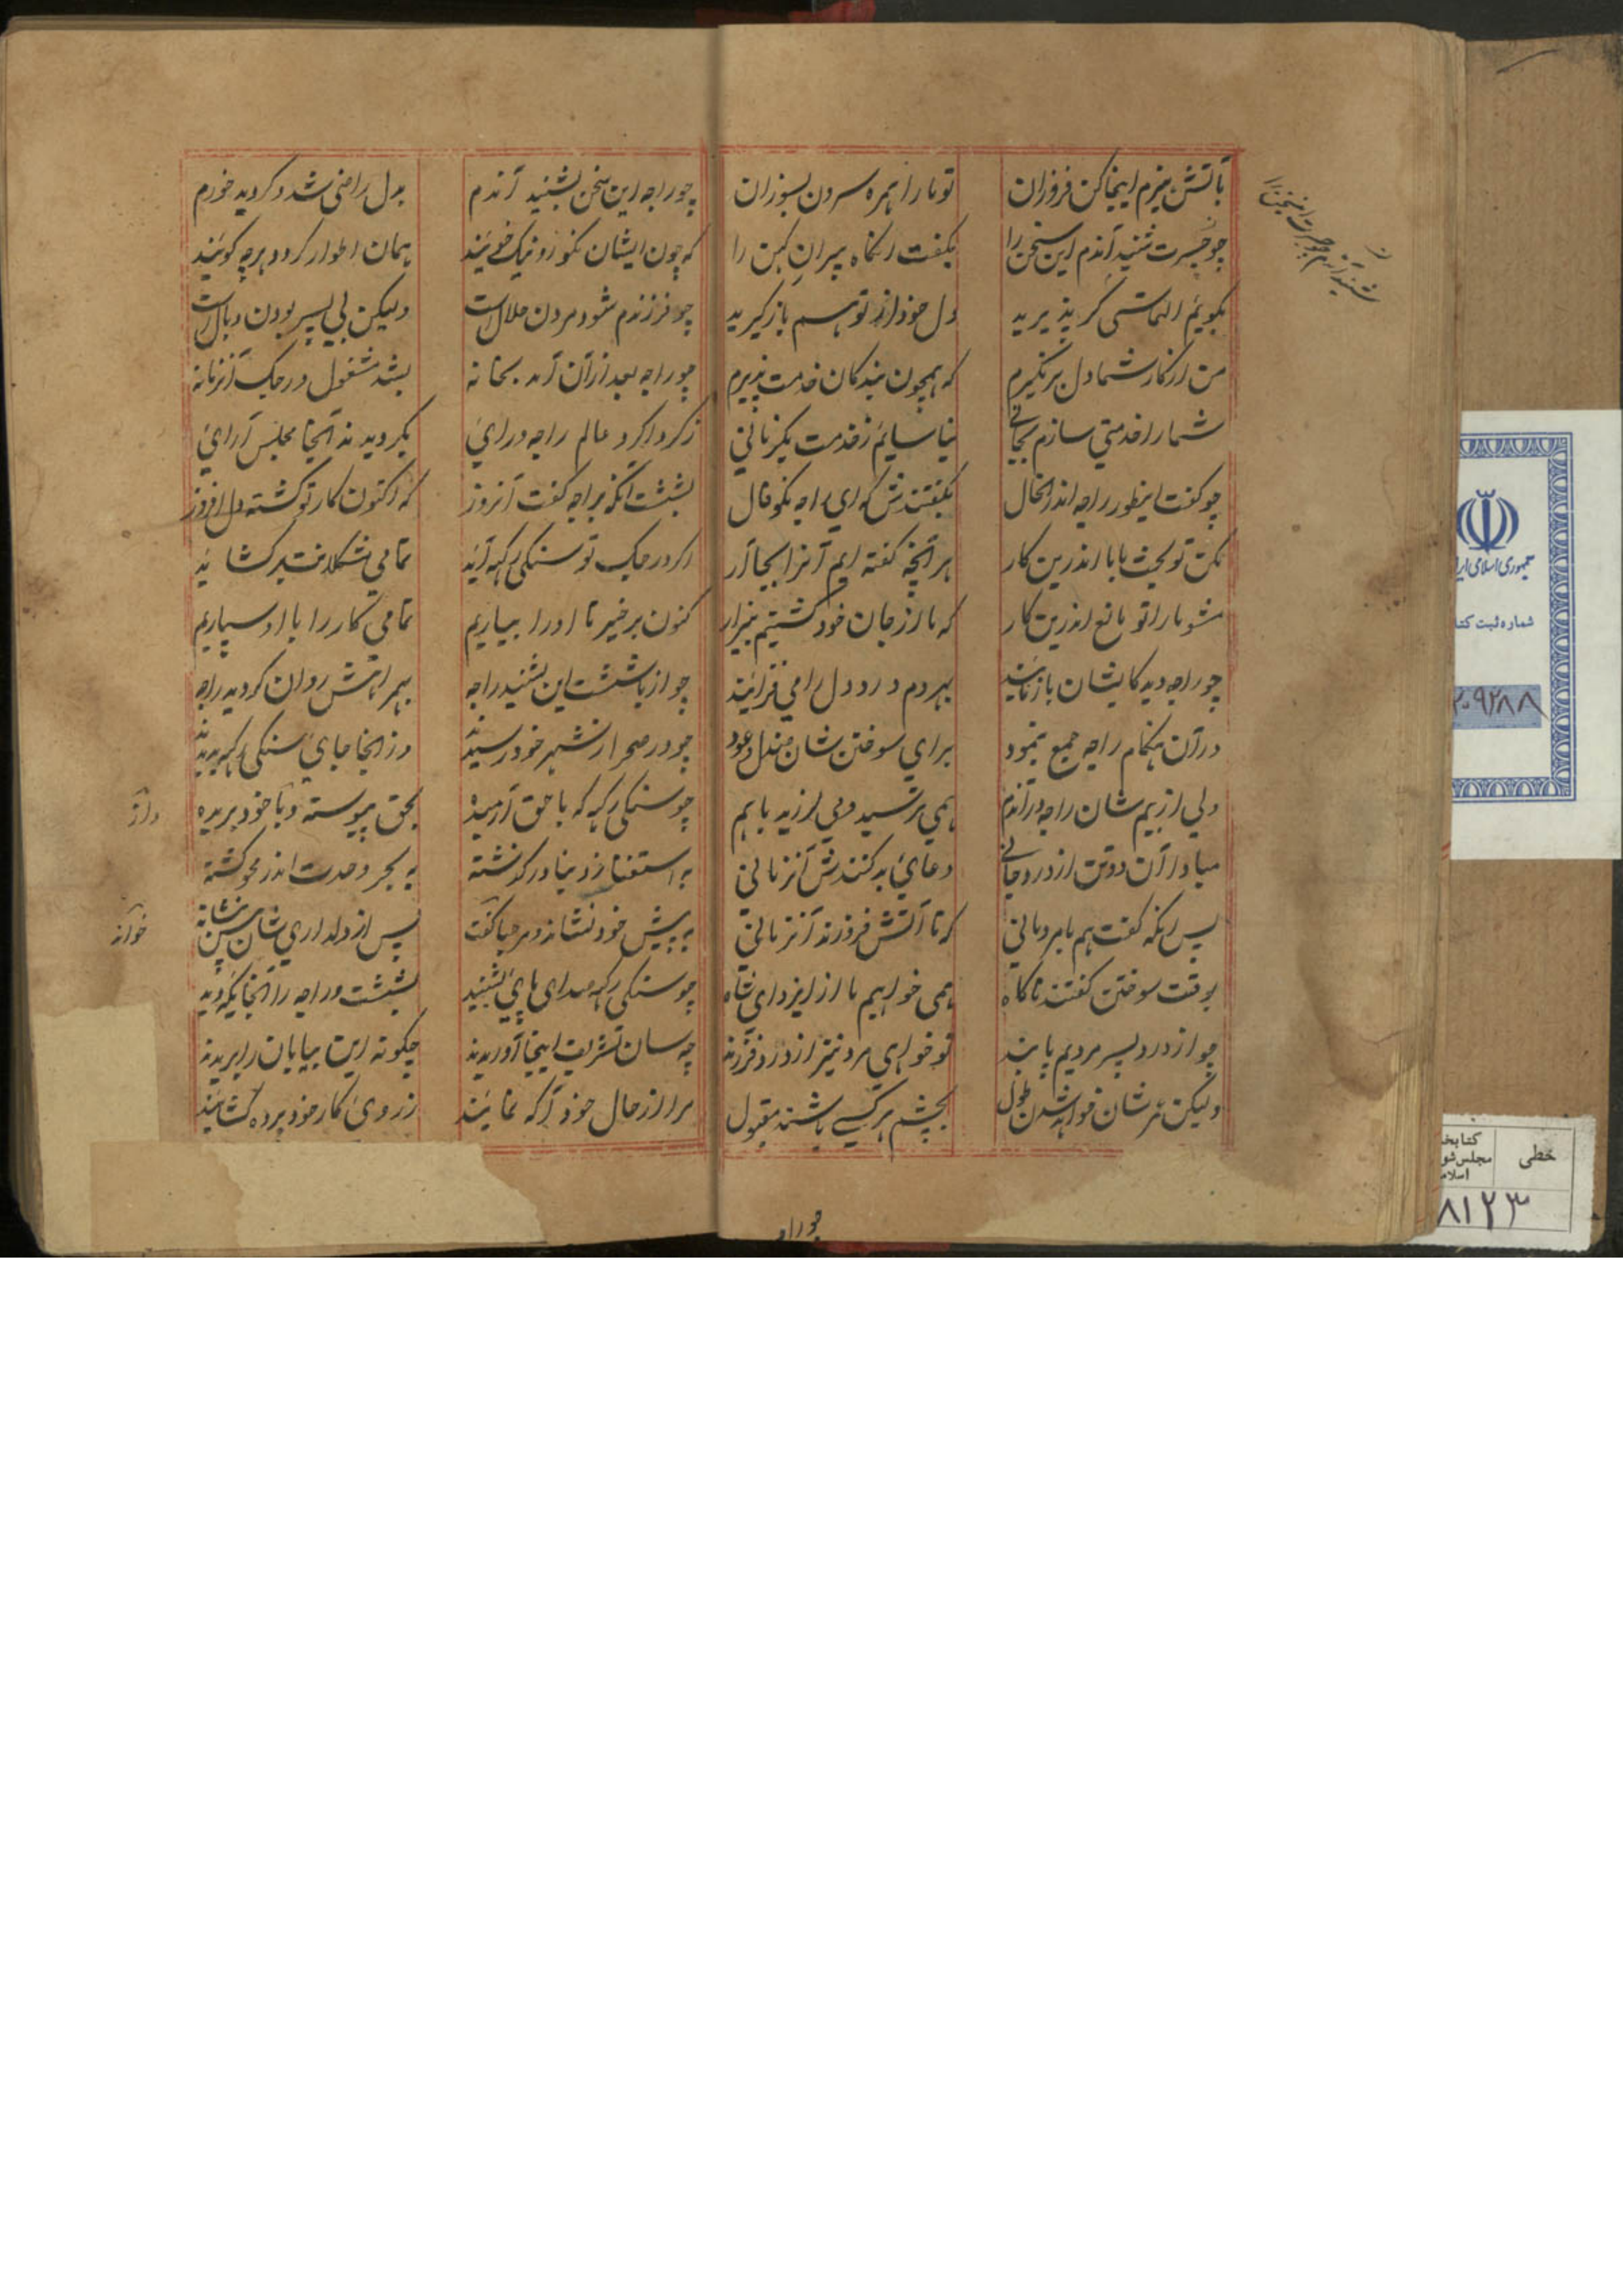 بآتش هیزم اینجا کن فروزان
تو ما را همره سرون بسوزان
چو جسرت شنید آندم این سخن را
بگفت آنگاه پیران کهن را
بگویم التماسی گر پذیرید
دل خود از توهم باز گیرید
من از کار شما دل بر نگیرم
که همچون بندکان خدمت پذیرم
شما را خدمتی سازم بجانی
نیاسایم ز خدمت یکزمانی
چو گفت اینطور راجه اندر انحال
بگفتندش که ای راجه نکو فال
مکن تو بحث با ما اندرین کار
هر آنچه گفته ایم آنرا بجا آر
مشو ما را تو مانع اندرین کار
که ما از جان خود کشتیم بیزار
چو راجه دید کایشان باز نایند
بهر دم درد دل را می فزایند
در آن هنکام راجه جمع بنمود
برای سوختن شان صندل و عود
ولی از بیم شان راجه در آندم
همی ترسید و می لرزید با هم
مبادا آن دو تن از درد جانی
دعای بد کنندش آنزمانی
پس آنکه گفت هم با مردمانی
که تا آتش فروزند آنزمانی
بوقت سوختن گفتند ناکاه
همی خواهیم ما از ایزد ای شاه
چو از درد پسر مردیم پابند
تو خواهی مرد نیز از درد فرزند
ولیکن هر شان خواهد شدن طول
بچشم هر کسی باشند مقبول
شنید آندم جسرت این سخن را
چو راجه
چو راجه این سخن بشنید آندم
بدل راضی شد و کردید خورم
که چون ایشان نکو رو نیک خویند
همان اطوار کردد هرچه کویند
چو فرزندم شود مردن ملال است
ولیکن بی پسر بودن وبال است
چو راجه بعد از آن آمد بخانه
بشد مشغول در جک آنزمانه
ز کرداکرد عالم راجه و رای
بکردیدند آنجا مجلس آرای
بششت آنکه براجه گفت آنروز
که اکنون کار تو کشته دل افروز
اگر در جک تو سنکی رکهه آید
تمامی مشکلات بر کشاید
کنون برخیز تا او را بیاریم
تمامی کار را با او سپاریم
چو از بششت این بشنید راجه
بهمراهش روان کردید راجه
چو در صحرا ز شهر خود رسیدند
در آنجا جای سنکی رکهه بدیدند
چو سنکی رکهه که با حق آرمیده
بحق پیوسته و با خود بریده
به استغنا ز دنیا در کذشته
به بحر وحدت اندر محو کشته
به پیش خود نشاند و مرحبا کفت
پس از دلداری شان
چو سنکی رکهه صدای پای بشنید
بششت و راجه را آنجا یکه دید
چه سان تشریف اینجا آوریدند
چکونه این بیابان را بریدند
مرا از حال خود آکه نمایند
ز روی کار خود پرده کشایند
خوانه
جمهوری اسلامی ایر
شماره ثبت کتا
۲۰۹۲۸۸
خطی
کتابخا
مجلس شو
اسلام
۸۱۲۳